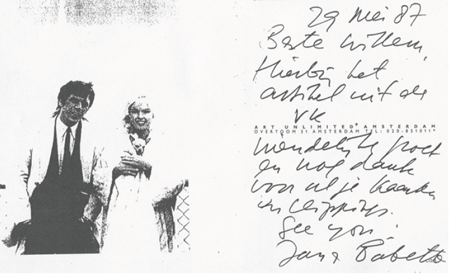 29 Mei '87
Beste Willem,
Hierbij het
artikel uit de
VK
ART UNLIMITED AMSTERDAM
OVERTOOM 31 AMSTERDAM TEL: 020-851011
vriendelijke groet
en nog dank
voor al je kaarten
en clippings.
See you!
Babette